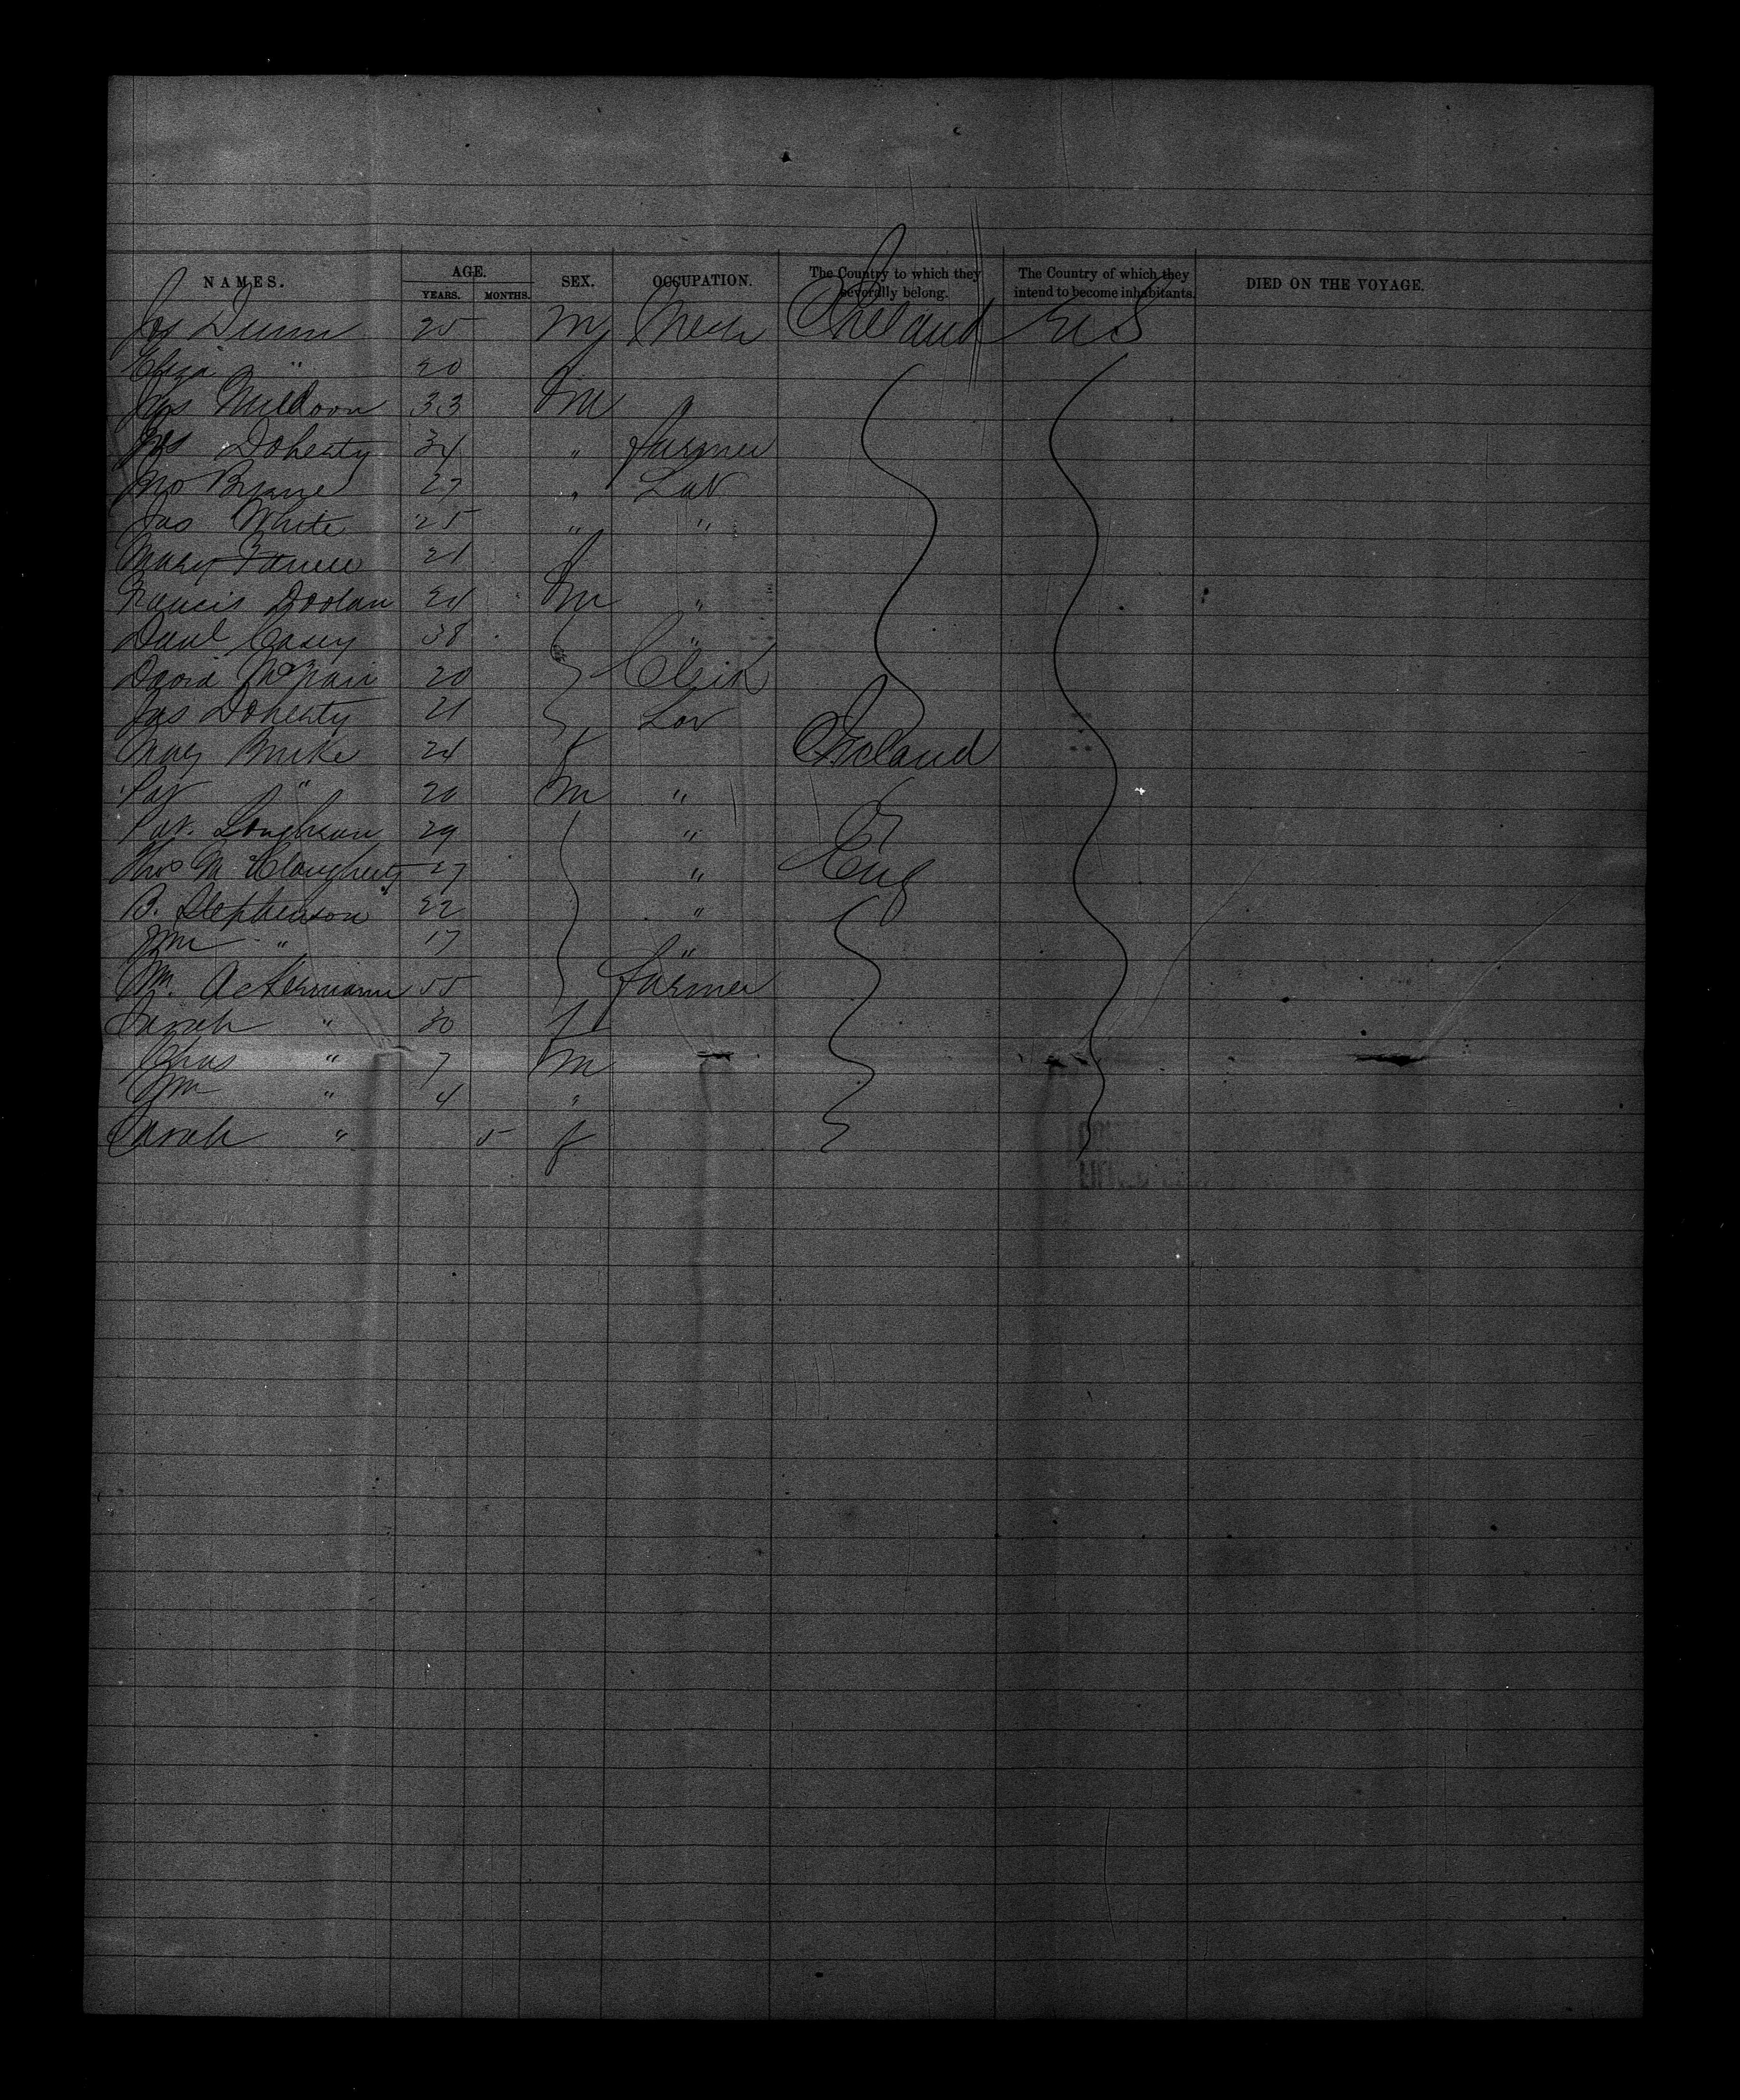 NAMES. AGE. SEX. OCCUPATION. The Country to which they severally belong. The Country of which they intend to become inhabitants. DIED ON THE VOYAGE.
YEARS. MONTHS.
Jas Dunn 25 M Mech Ireland U S
Eliza " 20 f
Jas Muldoon 33 M
Jas Doherty 34 " farmer
Jno Byrne 27 " Lab
Jas White 25 " "
Mary Farrell 21 f
Francis Doolan 24 M "
Danl Casey 38 "
David McNair 20 Clerk
Jas Doherty 21 Lab
Mary Burke 24 f Ireland
Pat " 20 M "
Pat. Loughran 29 "
Thos Mc Claugherty 27 " Eng
B. Stephenson 22 "
Wm " 17 "
Wm. Ackermann 55 farmer
Sarah " 30 f
Chas " 7 M
Wm " 4 "
Sarah " 5 f